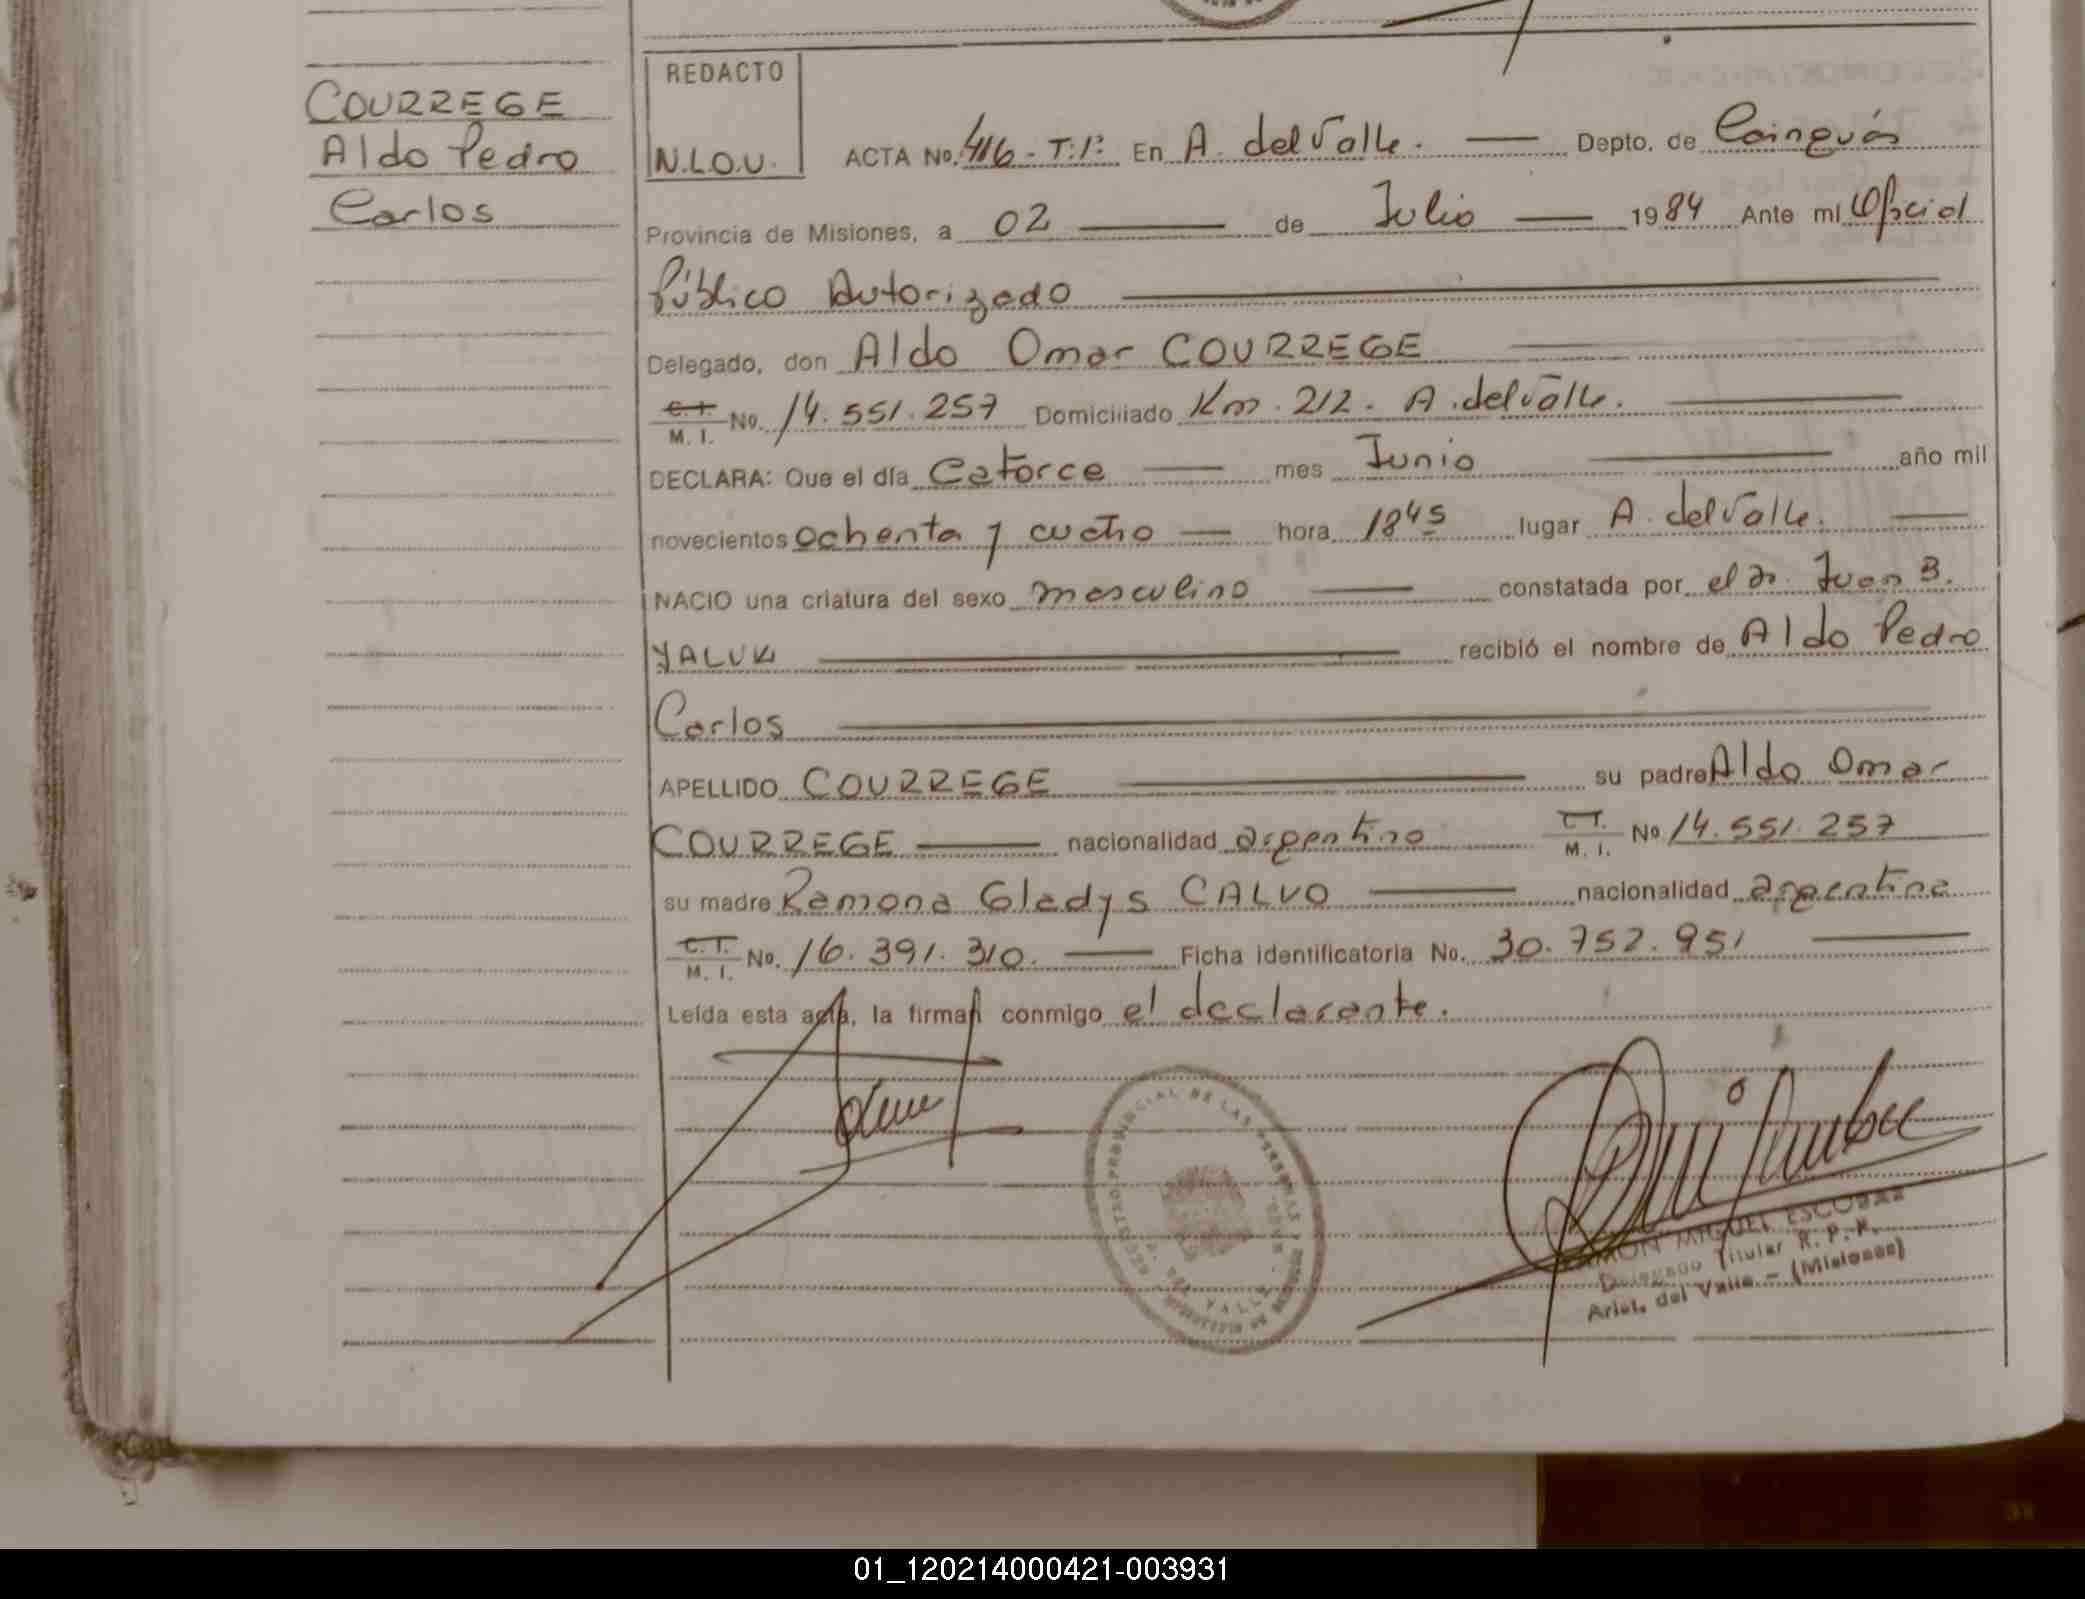 COURREGE
Aldo Pedro
Carlos
REDACTO
N.L.O.U.
ACTA No. 416 - T:1º En A. del Valle. Depto. de Cainguás
Provincia de Misiones, a 02 de Julio 1984 Ante mí Oficial
Público Autorizado
Delegado, don Aldo Omar COURREGE
C.I. M. I. No. 14.551.257 Domiciliado Km. 212. A. del Valle.
DECLARA: Que el día Catorce mes Junio año mil
novecientos ochenta y cuatro hora 18 45 lugar A. del Valle.
NACIO una criatura del sexo masculino constatada por el Dr. Juan B.
YALUK recibió el nombre de Aldo Pedro
Carlos
APELLIDO COURREGE su padre Aldo Omar
COURREGE nacionalidad argentino C.I. M. I. No. 14.551.257
su madre Ramona Gladys CALVO nacionalidad argentina
C.I. M. I. No. 16.391.310. Ficha identificatoria No. 30.752.951
Leída esta acta, la firman conmigo el declarante.
REGISTRO PROVINCIAL DE LAS PERSONAS
DEL VALLE
MIGUEL ESCOBAR
Delegado Titular R. P. P.
Arist. del Valle - (Misiones)
01_120214000421-003931